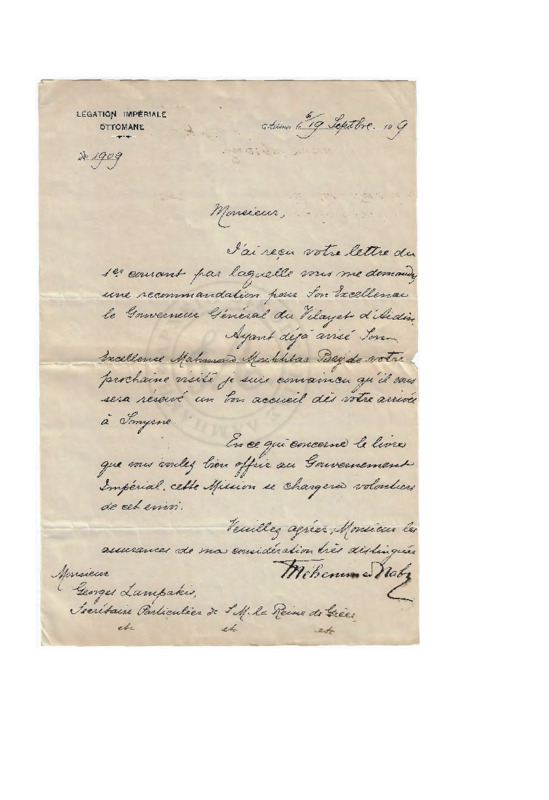 LÉGATION IMPÉRIALE
OTTOMANE
No 1909
Athènes le 6/19 Septbre. 1909
Monsieur,
J'ai reçu votre lettre du
1er courant par laquelle vous me demandez
une recommandation pour Son Excellence
le Gouverneur Général du Vilayet d'Aidin.
Ayant déjà avisé Son
Excellence Mahmoud Moukhtar Bey de votre
prochaine visite je suis convaincu qu'il vous
sera reservé un bon accueil dès votre arrivée
à Smyrne
En ce qui concerne le livre
que vous voulez bien offrir au Gouvernement
Impérial, cette Mission se chargera volontiers
de cet envoi.
Veuillez agréer, Monsieur les
assurances de ma considération très distinguée
Monsieur
Georges Lampakis,
Secrétaire Particulier de S. M. la Reine de Grèce
etc etc etc